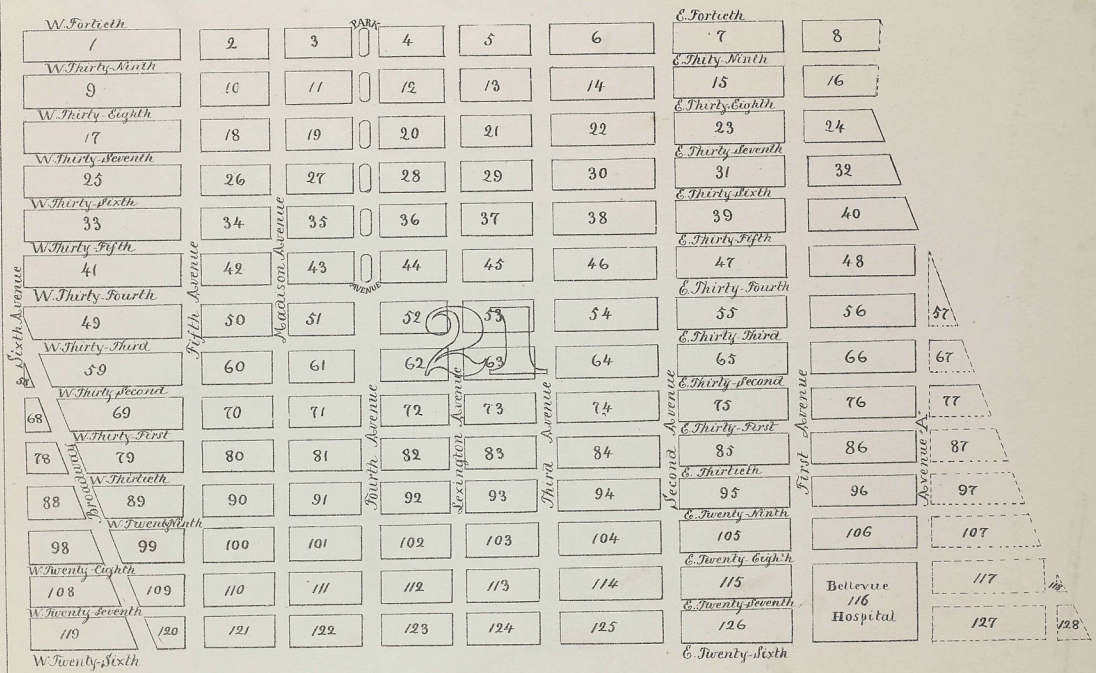 W. Fortieth PARK E. Fortieth
1 2 3 4 5 6 7 8
W. Thirty-Ninth E. Thity-Ninth
9 10 11 12 13 14 15 16
W. Thirty-Eighth E. Thirty-Eighth
17 18 19 20 21 22 23 24
W. Thirty-Seventh E. Thirty-Seventh
25 26 27 28 29 30 31 32
W. Thirty-Sixth E. Thirty-Sixth
33 34 35 36 37 38 39 40
W. Thirty-Fifth E. Thirty-Fifth
41 42 43 44 45 46 47 48
AVENUE
W. Thirty-Fourth E. Thirty-Fourth
49 50 51 52 53 54 55 56 57
21
W. Thirty-Third E. Thirty-Third
59 60 61 62 63 64 65 66 67
W. Thirty-Second E. Thirty-Second
68 69 70 71 72 73 74 75 76 77
W. Thirty-First E. Thirty-First
78 79 80 81 82 83 84 85 86 87
W. Thirtieth E. Thirtieth
88 89 90 91 92 93 94 95 96 97
W. Twenty-Ninth E. Twenty-Ninth
98 99 100 101 102 103 104 105 106 107
W. Twenty-Eighth E. Twenty-Eighth
108 109 110 111 112 113 114 115 117 118
Bellevue
116
Hospital
W. Twenty-Seventh E. Twenty-Seventh
119 120 121 122 123 124 125 126 127 128
W. Twenty-Sixth E. Twenty-Sixth
Sixth Avenue
Broadway
Fifth Avenue
Madison Avenue
Fourth Avenue
Lexington Avenue
Third Avenue
Second Avenue
First Avenue
Avenue "A"